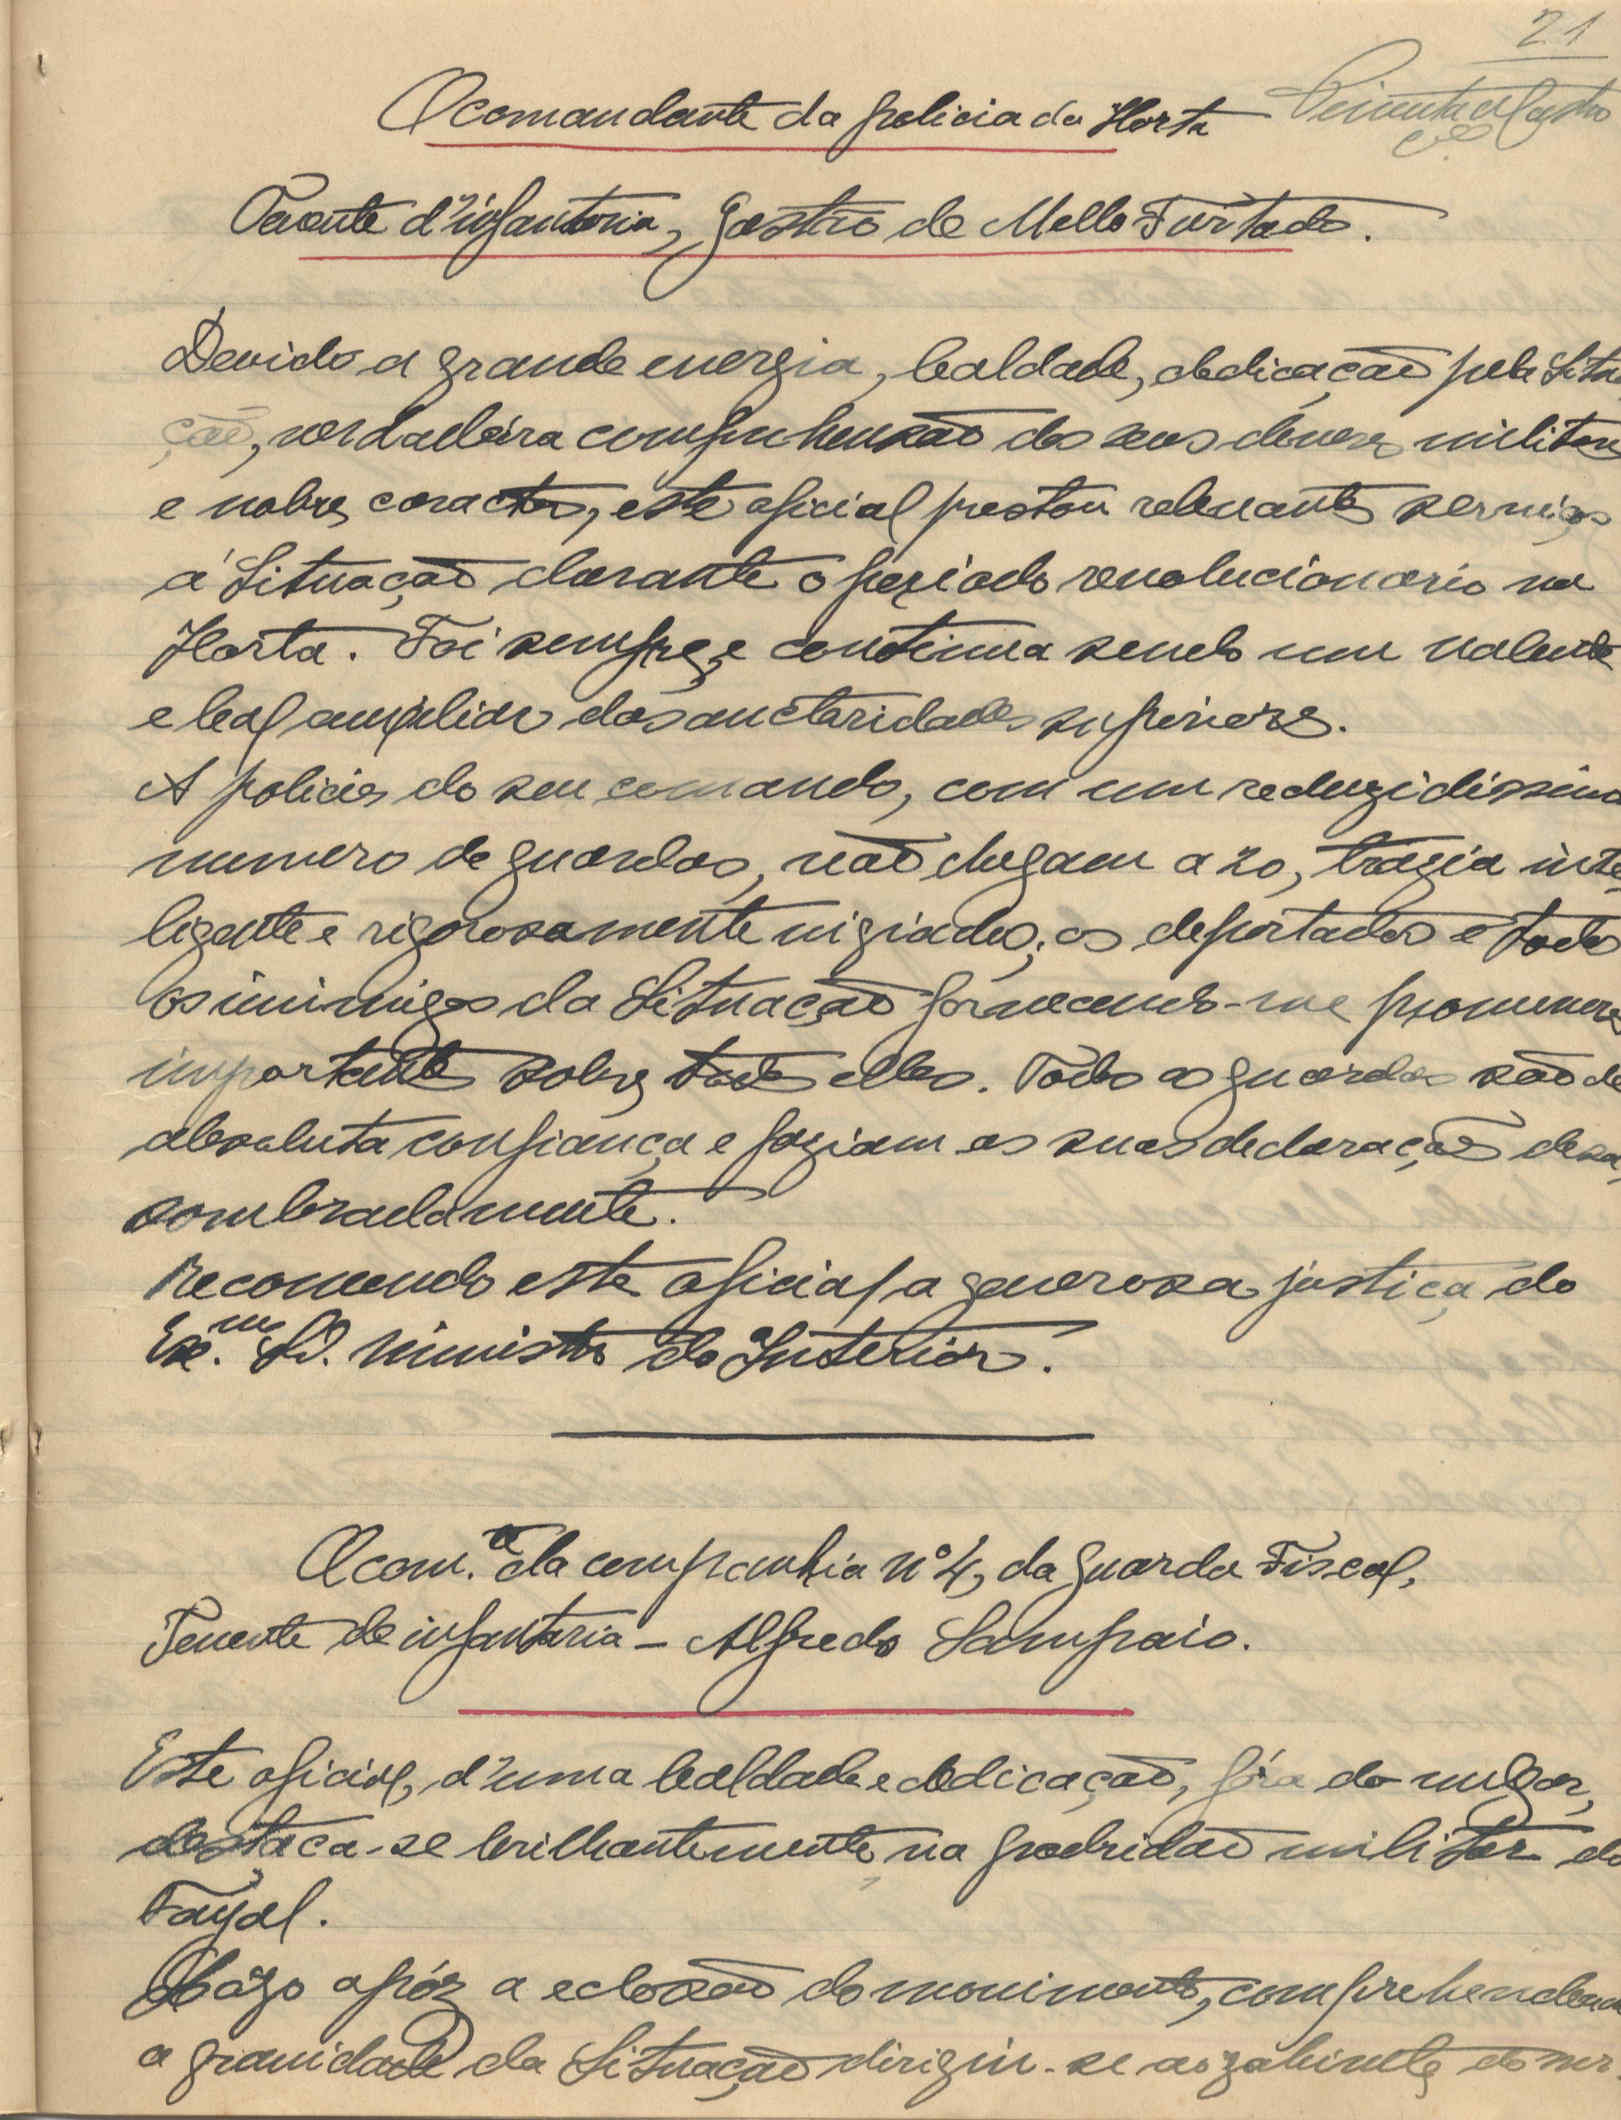 21
O comandante da policia da Horta
Tenente d'infantaria, Gastão de Mello Furtado.
Devido a grande energia, lealdade, dedicação pela Situa
ção, verdadeira comprehensão dos seus deveres militares
e nobre caracter, este oficial prestou relevantes serviços
á Situação durante o periodo revolucionario na
Horta. Foi sempre e continua sendo um valente
e leal auxiliar das auctoridades superiores.
A policia do seu comando, com um reduzidissimo
numero de guardas, não chegam a 20, trazia inte
ligente e rigorosamente vigiados, os deportados e todos
os inimigos da Situação fornecendo-me promenores
importantes sobre todos elles. Todos os guardas são de
absoluta confiança e faziam as suas declarações desa
sombradamente.
Recomendo este oficial a generosa justiça do
Ex.mo Sr. Ministro do Interior.
O com.te da companhia nº 4, da guarda Fiscal,
Tenente de infantaria - Alfredo Sampaio.
Este oficial, d'uma lealdade e dedicação, fóra do vulgar,
destaca-se brilhantemente, na podridão militar do
Fayal.
Lôgo após a eclosão do movimento, comprehendendo
a gravidade da Situação dirigiu-se ao gabinete do